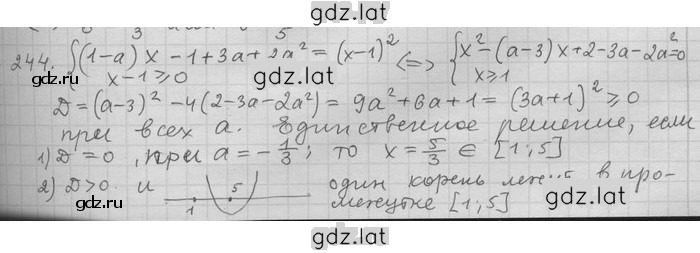 gdz.lat
244. {(1-a)x - 1 + 3a + 2a² = (x-1)² x-1 ≥ 0 <=> {x² - (a-3)x + 2 - 3a - 2a² = 0 x ≥ 1
D = (a-3)² - 4(2-3a-2a²) = 9a² + 6a + 1 = (3a+1)² ≥ 0
при всех a. Единственное решение, если
1) D = 0, при a = -1/3; то x = 5/3 ∈ [1;5]
2) D>0 и 1 5 один корень леж в про-
межутке [1;5]
gdz.lat
gdz.lat
gdz.lat
gdz.lat
gdz.lat
gdz.lat